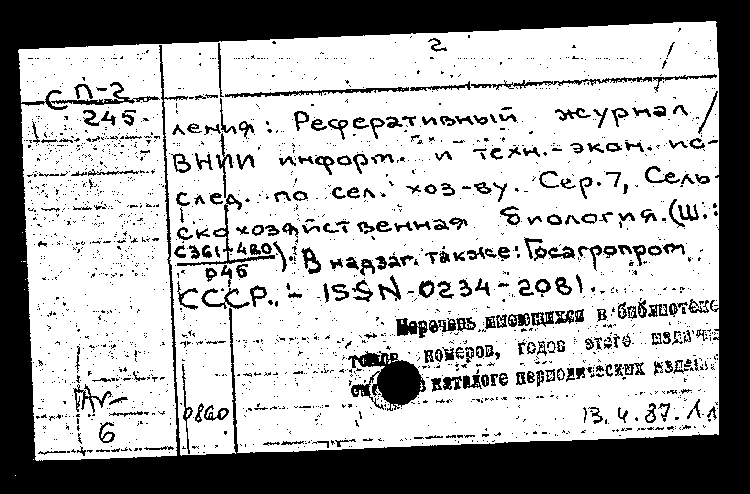 2
СП-2
245.
ления: Реферативный журнал /
ВНИИ информ. и техн.-экон. ис-
след. по сел. хоз-ву. Сер.7, Сель-
скохозяйственная биология.(Ш.:
С361-480
). В надзаг. также: Госагропром
045
СССР. - ISSN 0234-2081.
Перечень имеющихся в библиотеке
томов, номеров, годов этого издания
см. в каталоге периодических изданий
6
0860
13.4.87.